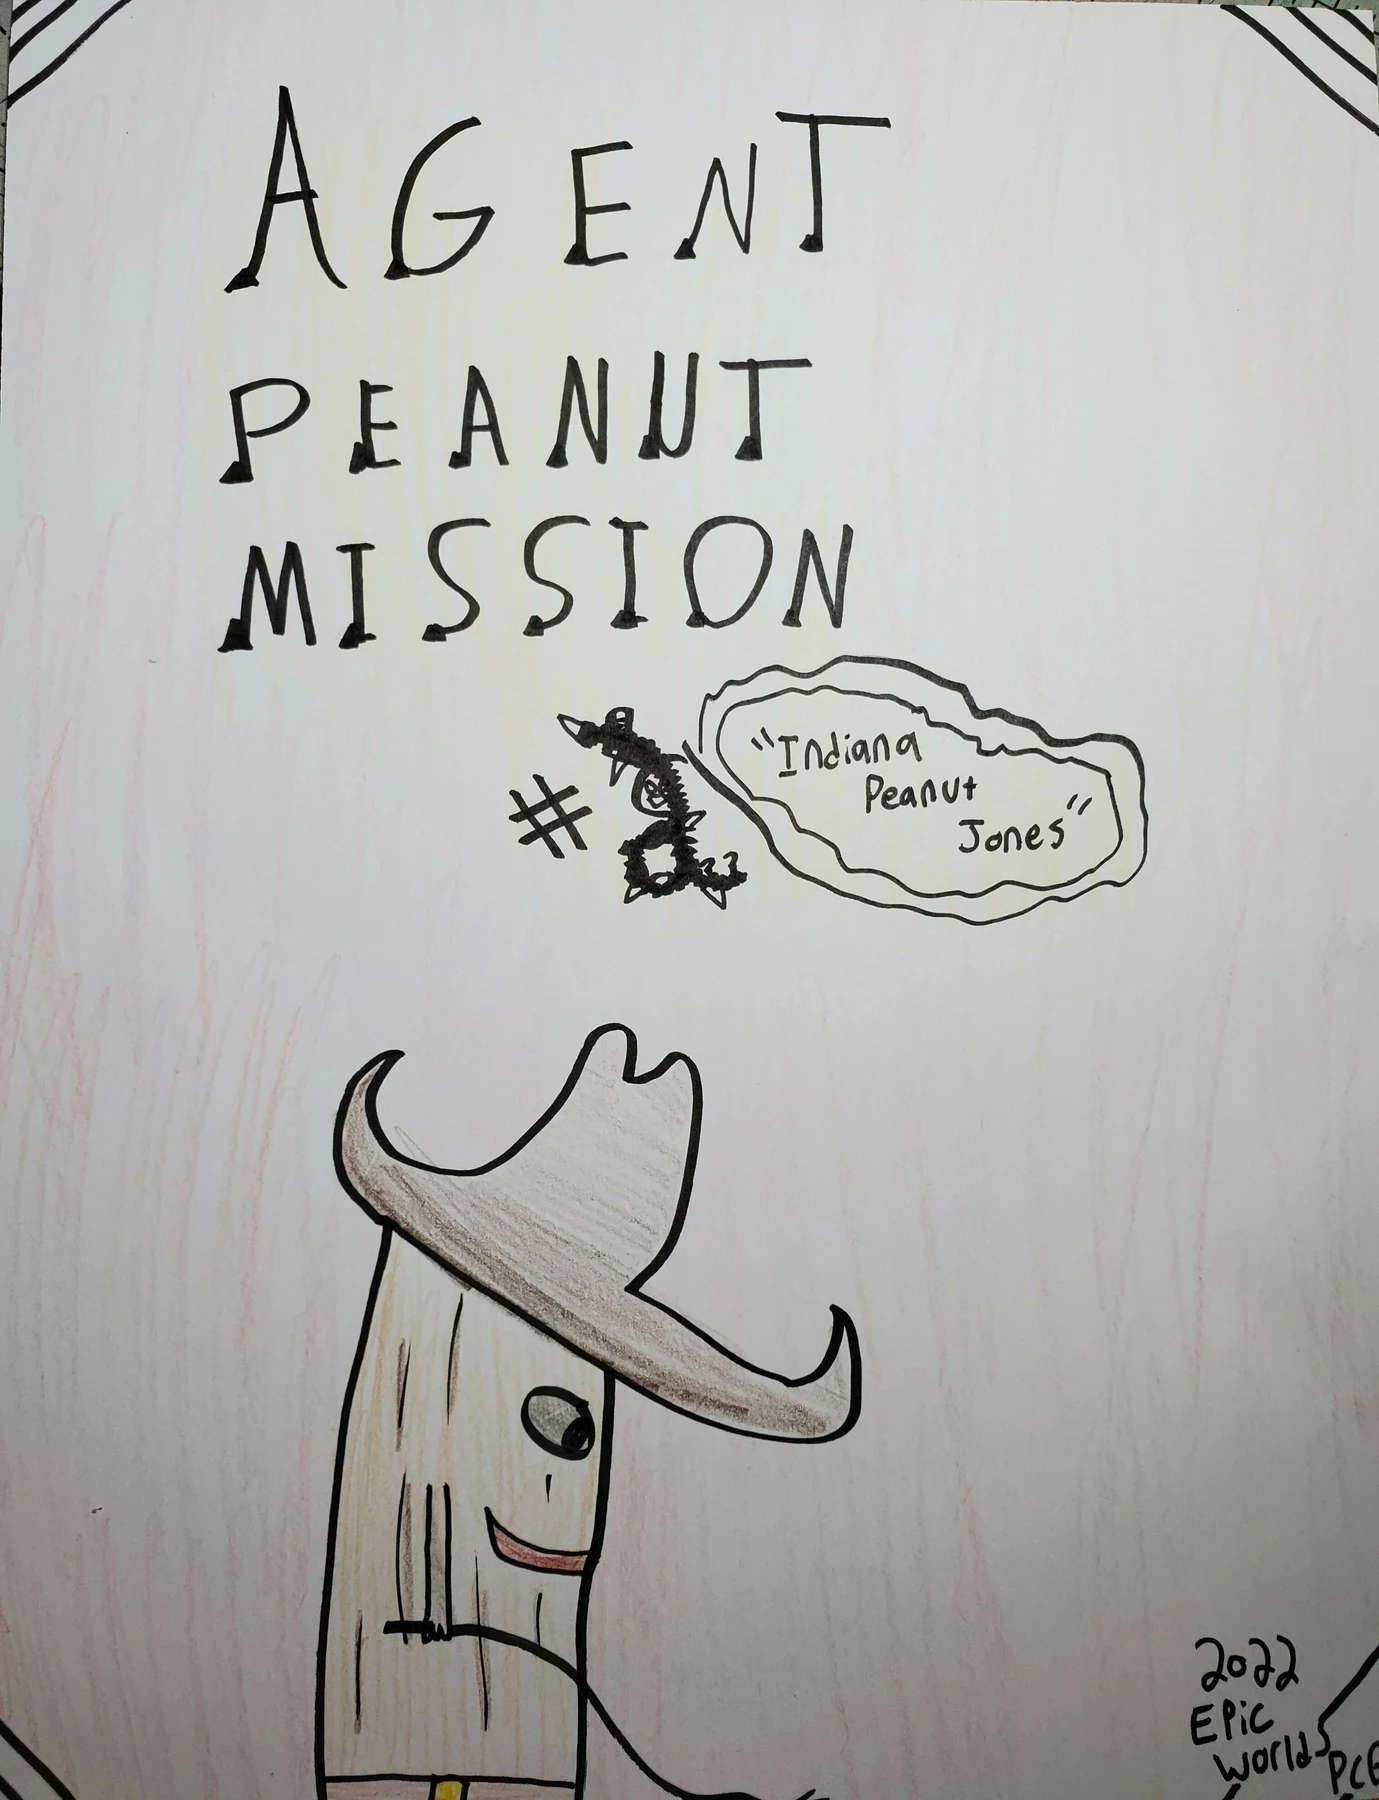 AGENT
PEANUT
MISSION
#
"Indiana
Peanut
Jones"
2022
Epic
Worlds